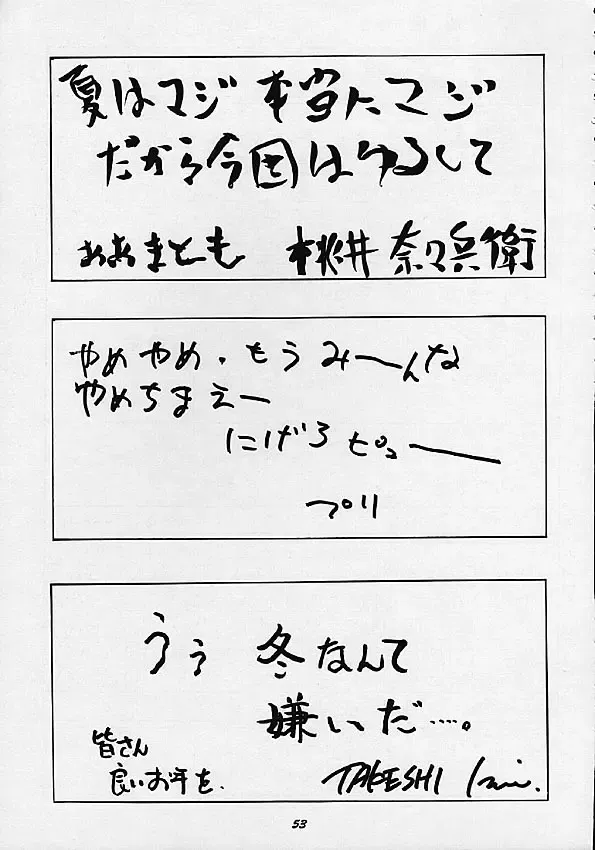 夏はマジ 本当にマジ
だから今回はゆるして
ああまとも 桃井 奈々兵衛
やめやめ。もうみーんな
やめちまえー
にげろ ピューーー
プリ
うぅ 冬なんて
嫌いだ…。
皆さん
良いお年を。
TAKESHI
53